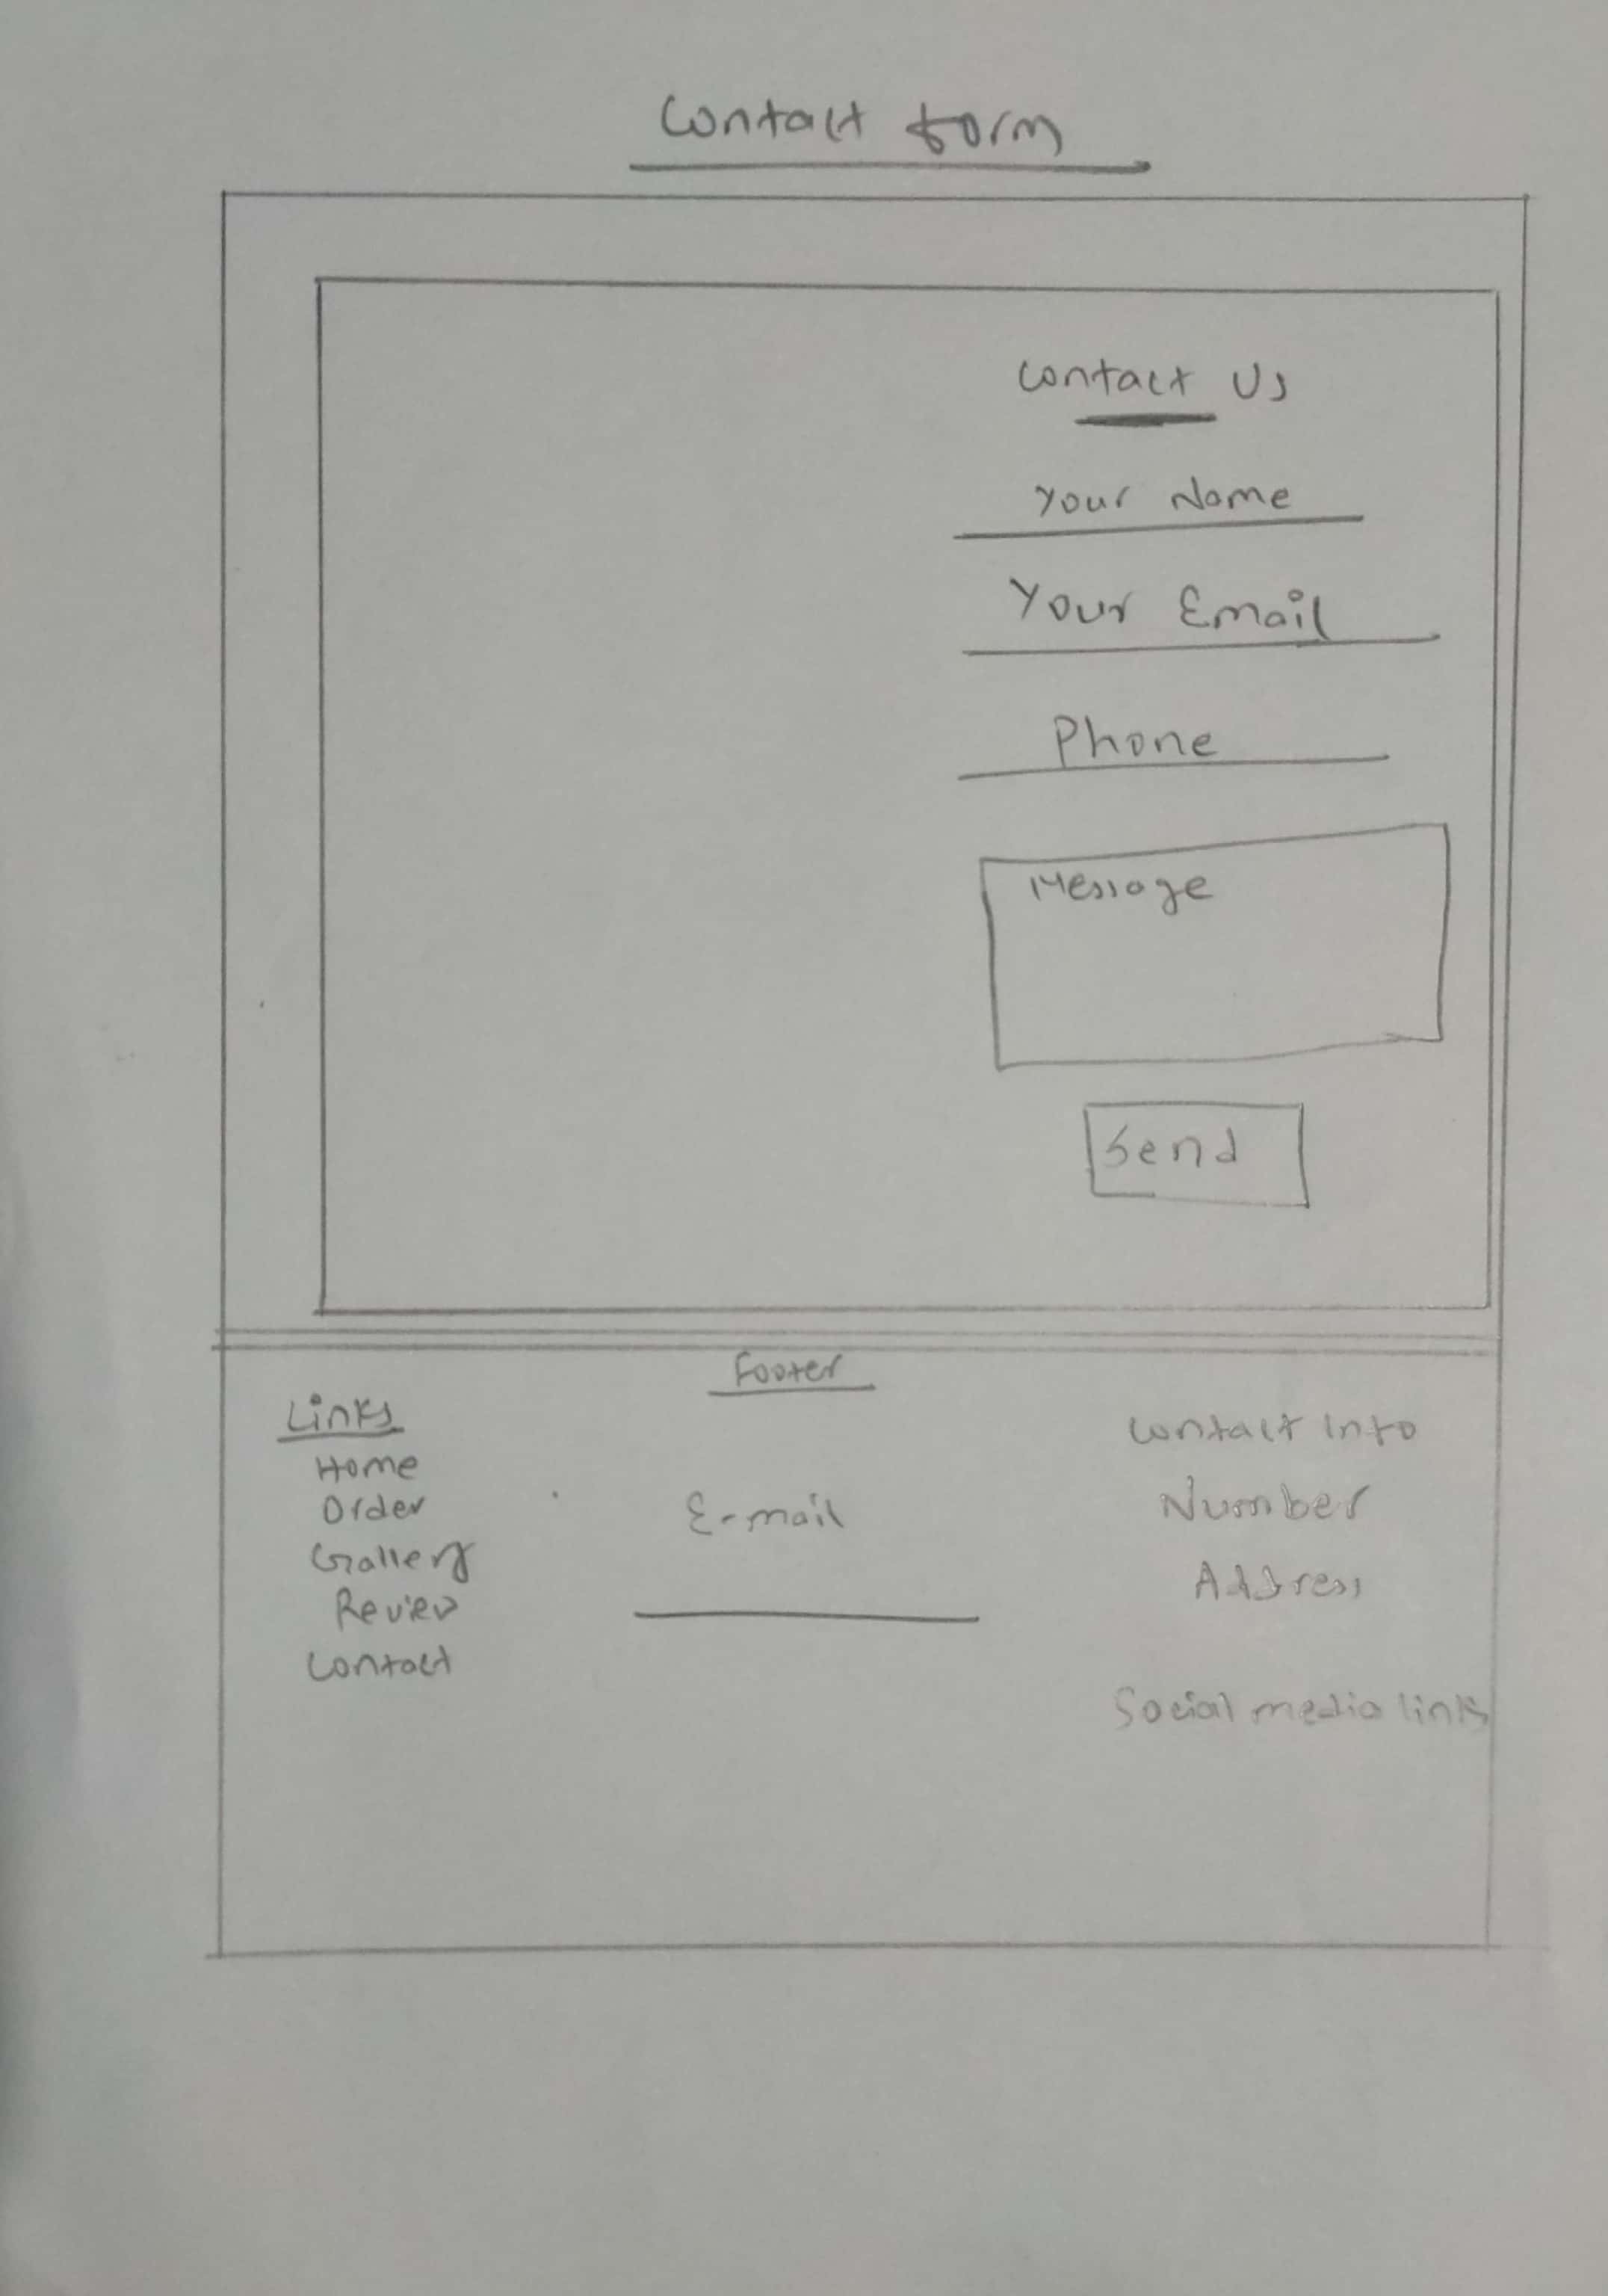 Contact form
Contact Us
Your Name
Your Email
Phone
Message
Send
Footer
Links
Home
Order
Gallery
Review
Contact
E-mail
Contact Info
Number
Address
Social media links